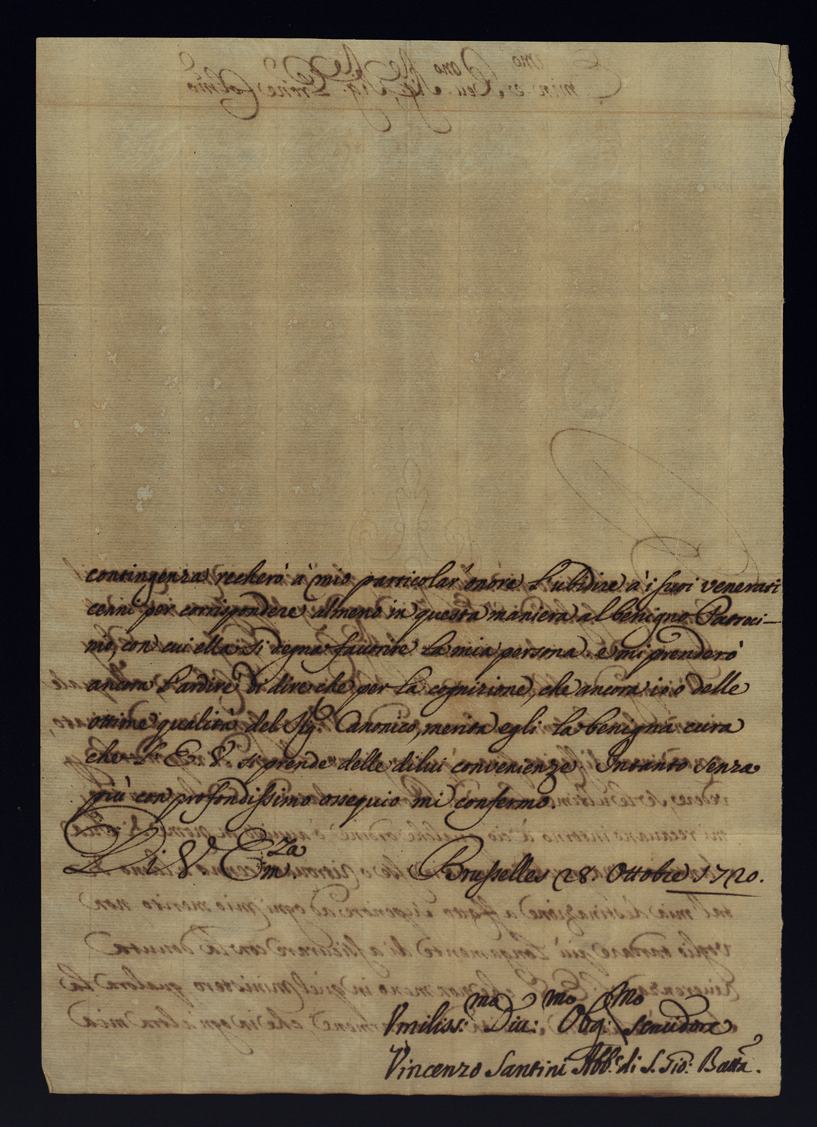 contingenza recherò à mio particolar onore l'ubidire à i suoi venerati
cenni per corrispondere almeno in questa maniera al benigno Patroci-
nio, con cui ella si degna favorire la mia persona e mi prenderò
ancora l'ardire di dire che per la cognizione, che ancora io ò delle
ottime qualità del Sig.r Canonico, merita egli la benigna cura
che L'E. V. si prende delle dilui convenienze. Intanto senza
più con profondissimo ossequio mi confermo.
Di V. Em.za
Brusselles 28. Ottobre 1720.
Vmiliss.mo Diu.mo Obg.mo Seruidore
Vincenzo Santini Abb.e di S. Gio: Batta.